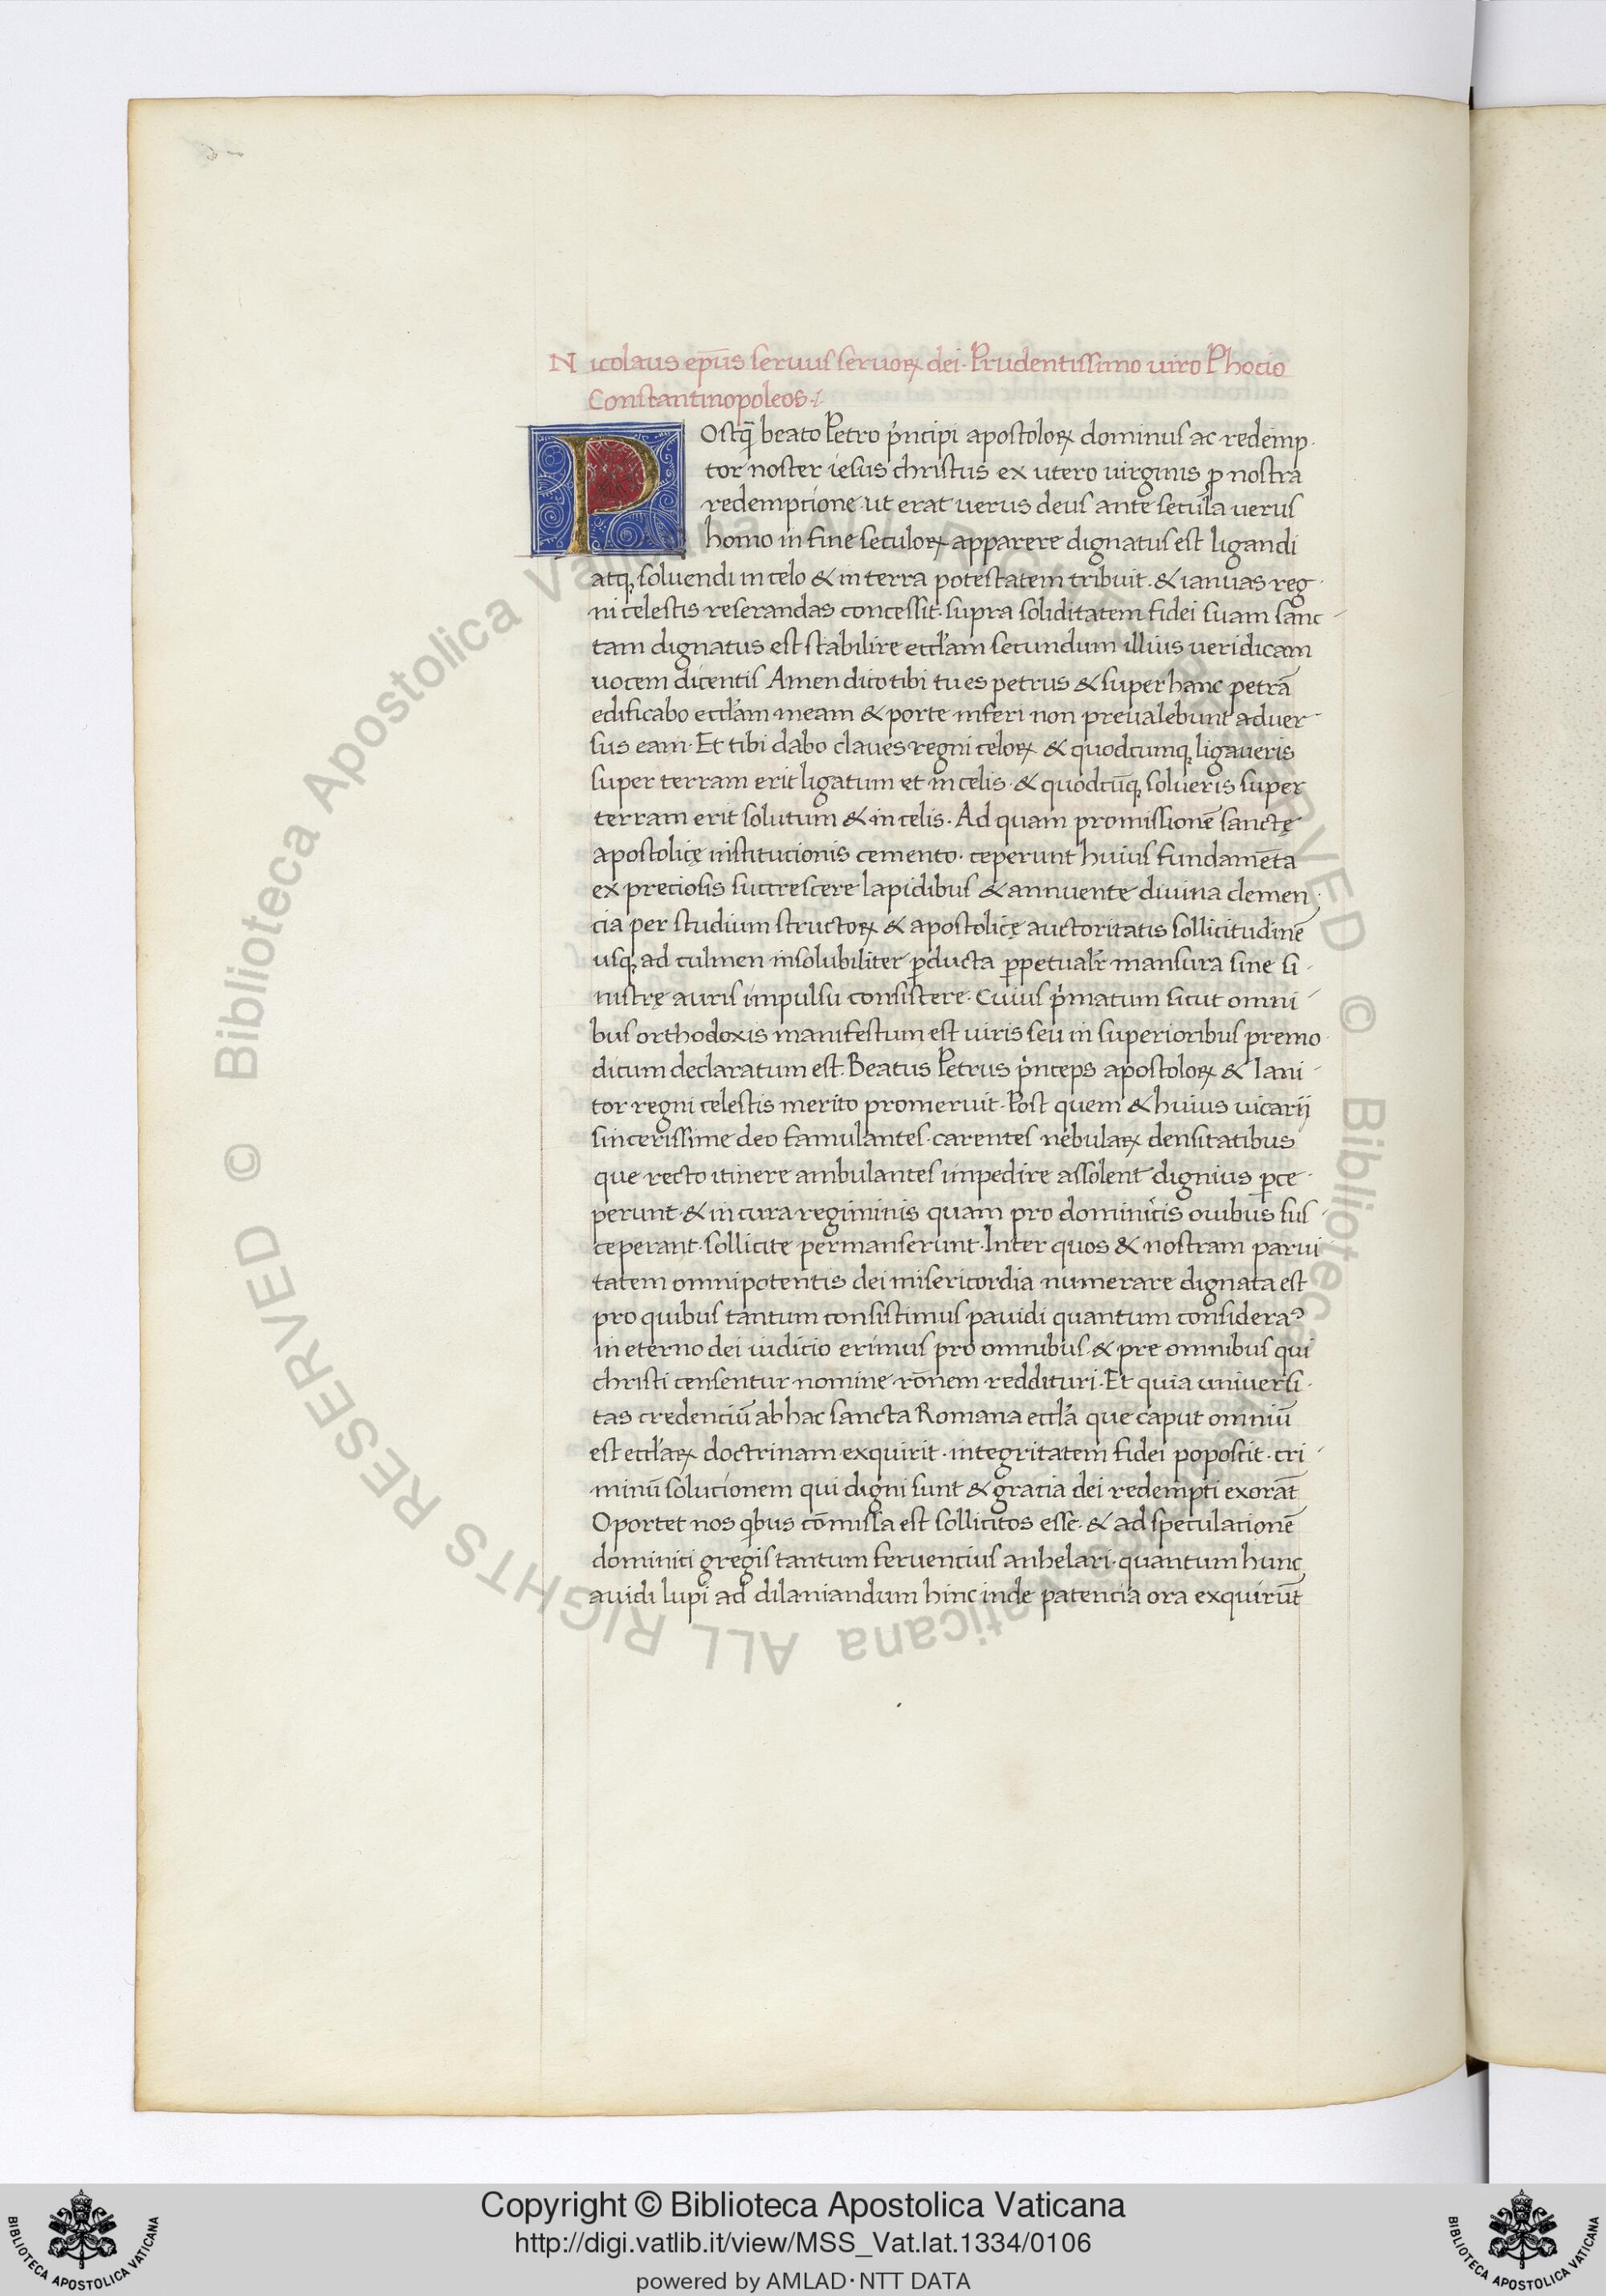 Nicolaus ep̄us seruus seruoꝝ dei. Prudentissimo uiro Phocio
Constantinopoleos.
POstꝗ̄ beato Petro pͥncipi apostoloꝝ dominus ac redemp
tor noster iesus christus ex utero uirginis ꝓ nostra
redemptione ut erat uerus deus ante secula uerus
homo in fine seculoꝝ apparere dignatus est ligandi
atqꝫ soluendi in celo & in terra potestatem tribuit. & ianuas reg
ni celestis reserandas concessit. supra soliditatem fidei suam sanc
tam dignatus est stabilire eccl'am secundum illius ueridicam
uocem dicentis Amen dico tibi tu es petrus & super hanc petrā
edificabo eccl'am meam & porte inferi non preualebunt aduer
sus eam. Et tibi dabo claues regni celoꝝ & quodcumqꝫ ligaueris
super terram erit ligatum et in celis. & quodcūqꝫ solueris super
terram erit solutum & in celis. Ad quam promissionē sanctę
apostolicę institucionis cemento. ceperunt huius fundamēta
ex preciosis succrescere lapidibus & annuente diuina clemen
cia per studium structoꝝ & apostolicę auctoritatis sollicitudinē
usqꝫ ad culmen insolubiliter ꝑducta ꝑpetualr̄ mansura sine si
nistrę auris impulsu consistere. Cuius pͥmatum sicut omni
bus orthodoxis manifestum est uiris seu in superioribus premo
dicum declaratum est. Beatus Petrus pͥnceps apostoloꝝ & Iani
tor regni celestis merito promeruit. Post quem & huius uicarij
sincerissime deo famulantes. carentes nebulaꝝ densitatibus
que recto itinere ambulantes impedire assolent dignius ꝑce
perunt. & in cura regiminis quam pro dominicis ouibus sus
ceperant. sollicite permanserunt. Inter quos & nostram parui
tatem omnipotentis dei misericordia numerare dignata est
pro quibus tantum consistimus pauidi quantum consideraꝰ
in eterno dei iudicio erimus pro omnibus & pre omnibus qui
christi censentur nomine rōnem reddituri. Et quia uniuersi
tas credenciū ab hac sancta Romana eccl'a que caput omniū
est eccl'aꝝ doctrinam exquirit. integritatem fidei poposcit. cri
minū solucionem qui digni sunt & gracia dei redempti exorāt
Oportet nos qͥbus cōmissa est sollicitos esse. & ad speculacionē
dominici gregis tantum feruencius anhelari. quantum hunc
auidi lupi ad dilaniandum hinc inde patencia ora exquirūt
© Biblioteca Apostolica Vaticana ALL RIGHTS RESERVED © Biblioteca Apostolica Vaticana ALL RIGHTS RESERVED
Copyright © Biblioteca Apostolica Vaticana
http://digi.vatlib.it/view/MSS_Vat.lat.1334/0106
powered by AMLAD·NTT DATA
BIBLIOTECA APOSTOLICA VATICANA
BIBLIOTECA APOSTOLICA VATICANA